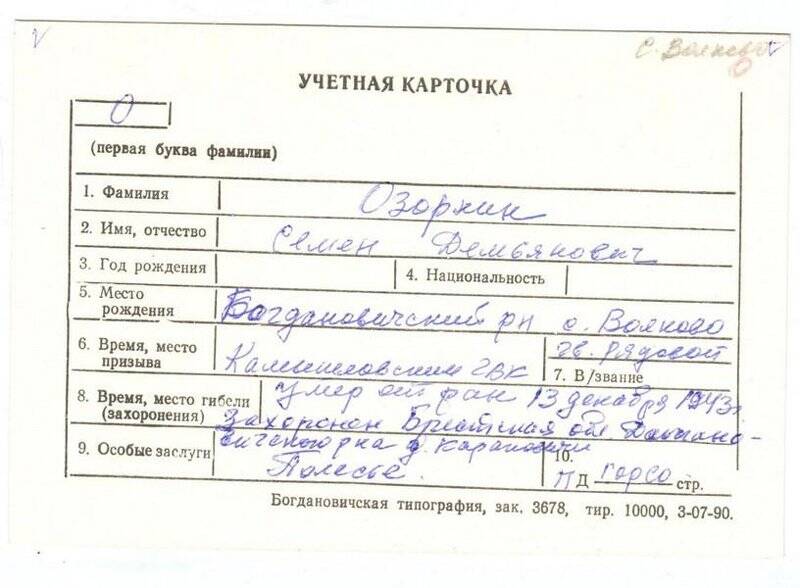 С. Волково
О
УЧЕТНАЯ КАРТОЧКА
О
(первая буква фамилии)
1. Фамилия Озорнин
2. Имя, отчество Семен Демьянович
3. Год рождения 4. Национальность
5. Место рождения Богдановичский рн с. Волково
6. Время, место призыва Камышловским ГВК
гв. рядовой
7. В/звание
8. Время, место гибели (захоронения) умер от ран 13 декабря 1943г
захоронен Брестская обл
9. Особые заслуги вичского рна д. Карановичи
Полесье.
10.
ПД горсо стр.
Богдановичская типография, зак. 3678, тир. 10000, 3-07-90.